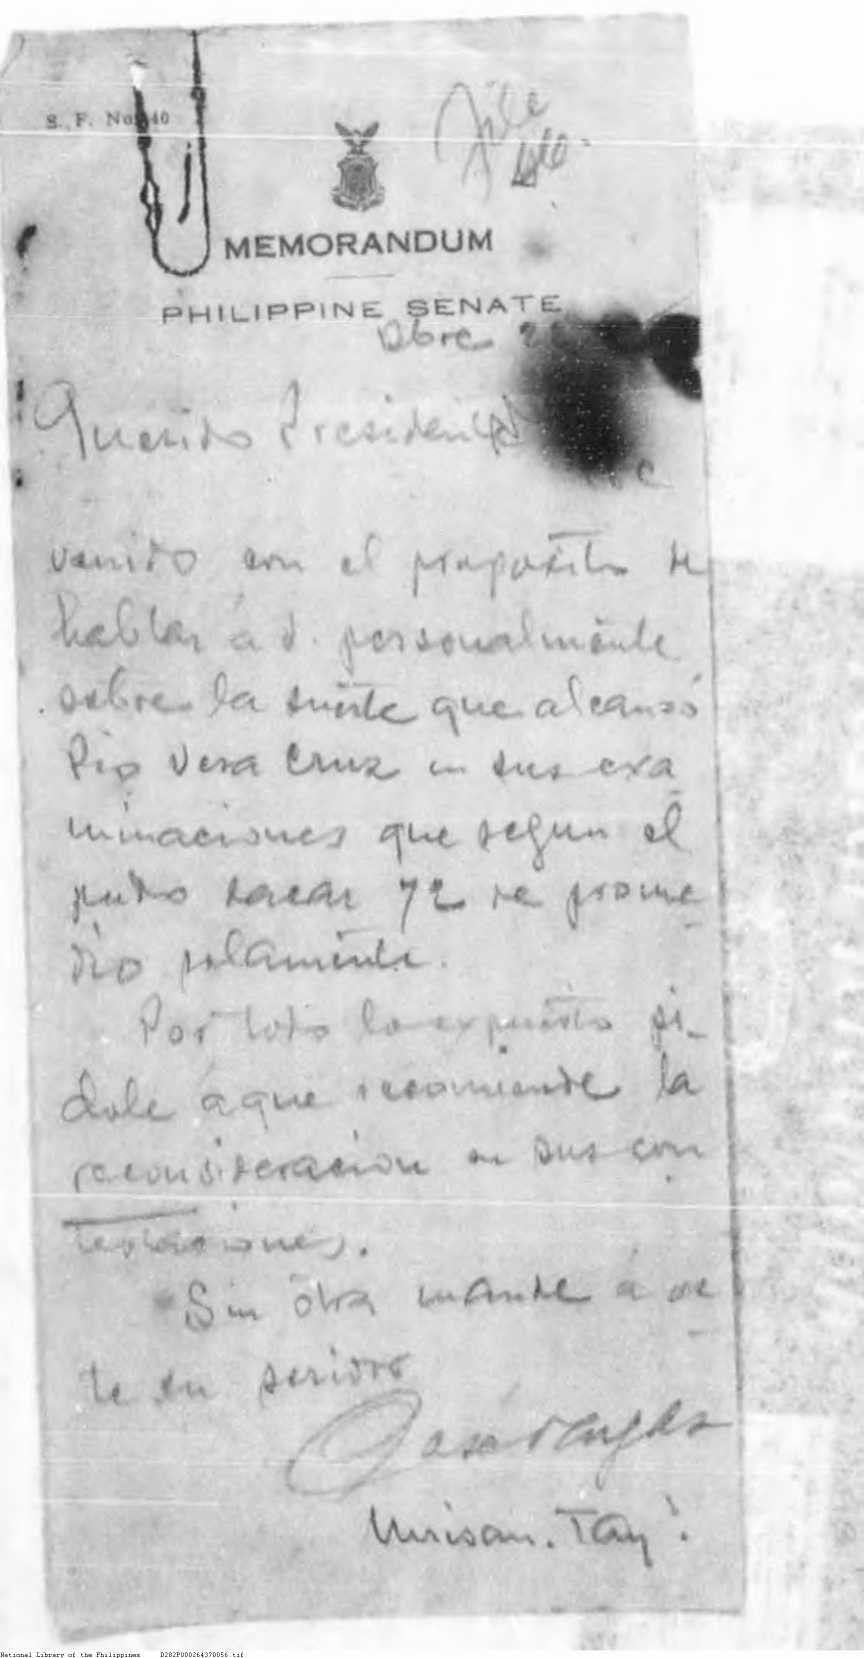 S. F. No. 40
File
MEMORANDUM
PHILIPPINE SENATE
Dbre 2
Querido Presidente
venido con el proposito de
hablar á V. personalmente
sobre la suerte que alcanzó
Pio Vera Cruz en sus exa
minaciones que segun el
pudo sacar 72 de prome-
dio solamente.
Por todo lo expuesto pi-
dole á que recomiende la
reconsideracion en sus con
testaciones.
Sin otra mande á es-
te su seridor
José Vargas
Unisan. Tay.
National Library of the Philippines D282P000264370056.tif